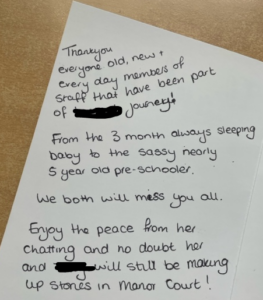 Thankyou
everyone old, new +
every day members of
staff that have been part
of journey!
From the 3 month always sleeping
baby to the sassy nearly
5 year old pre-schooler.
We both will miss you all.
Enjoy the peace from her
chatting and no doubt her
and will still be making
up stories in Manor Court!